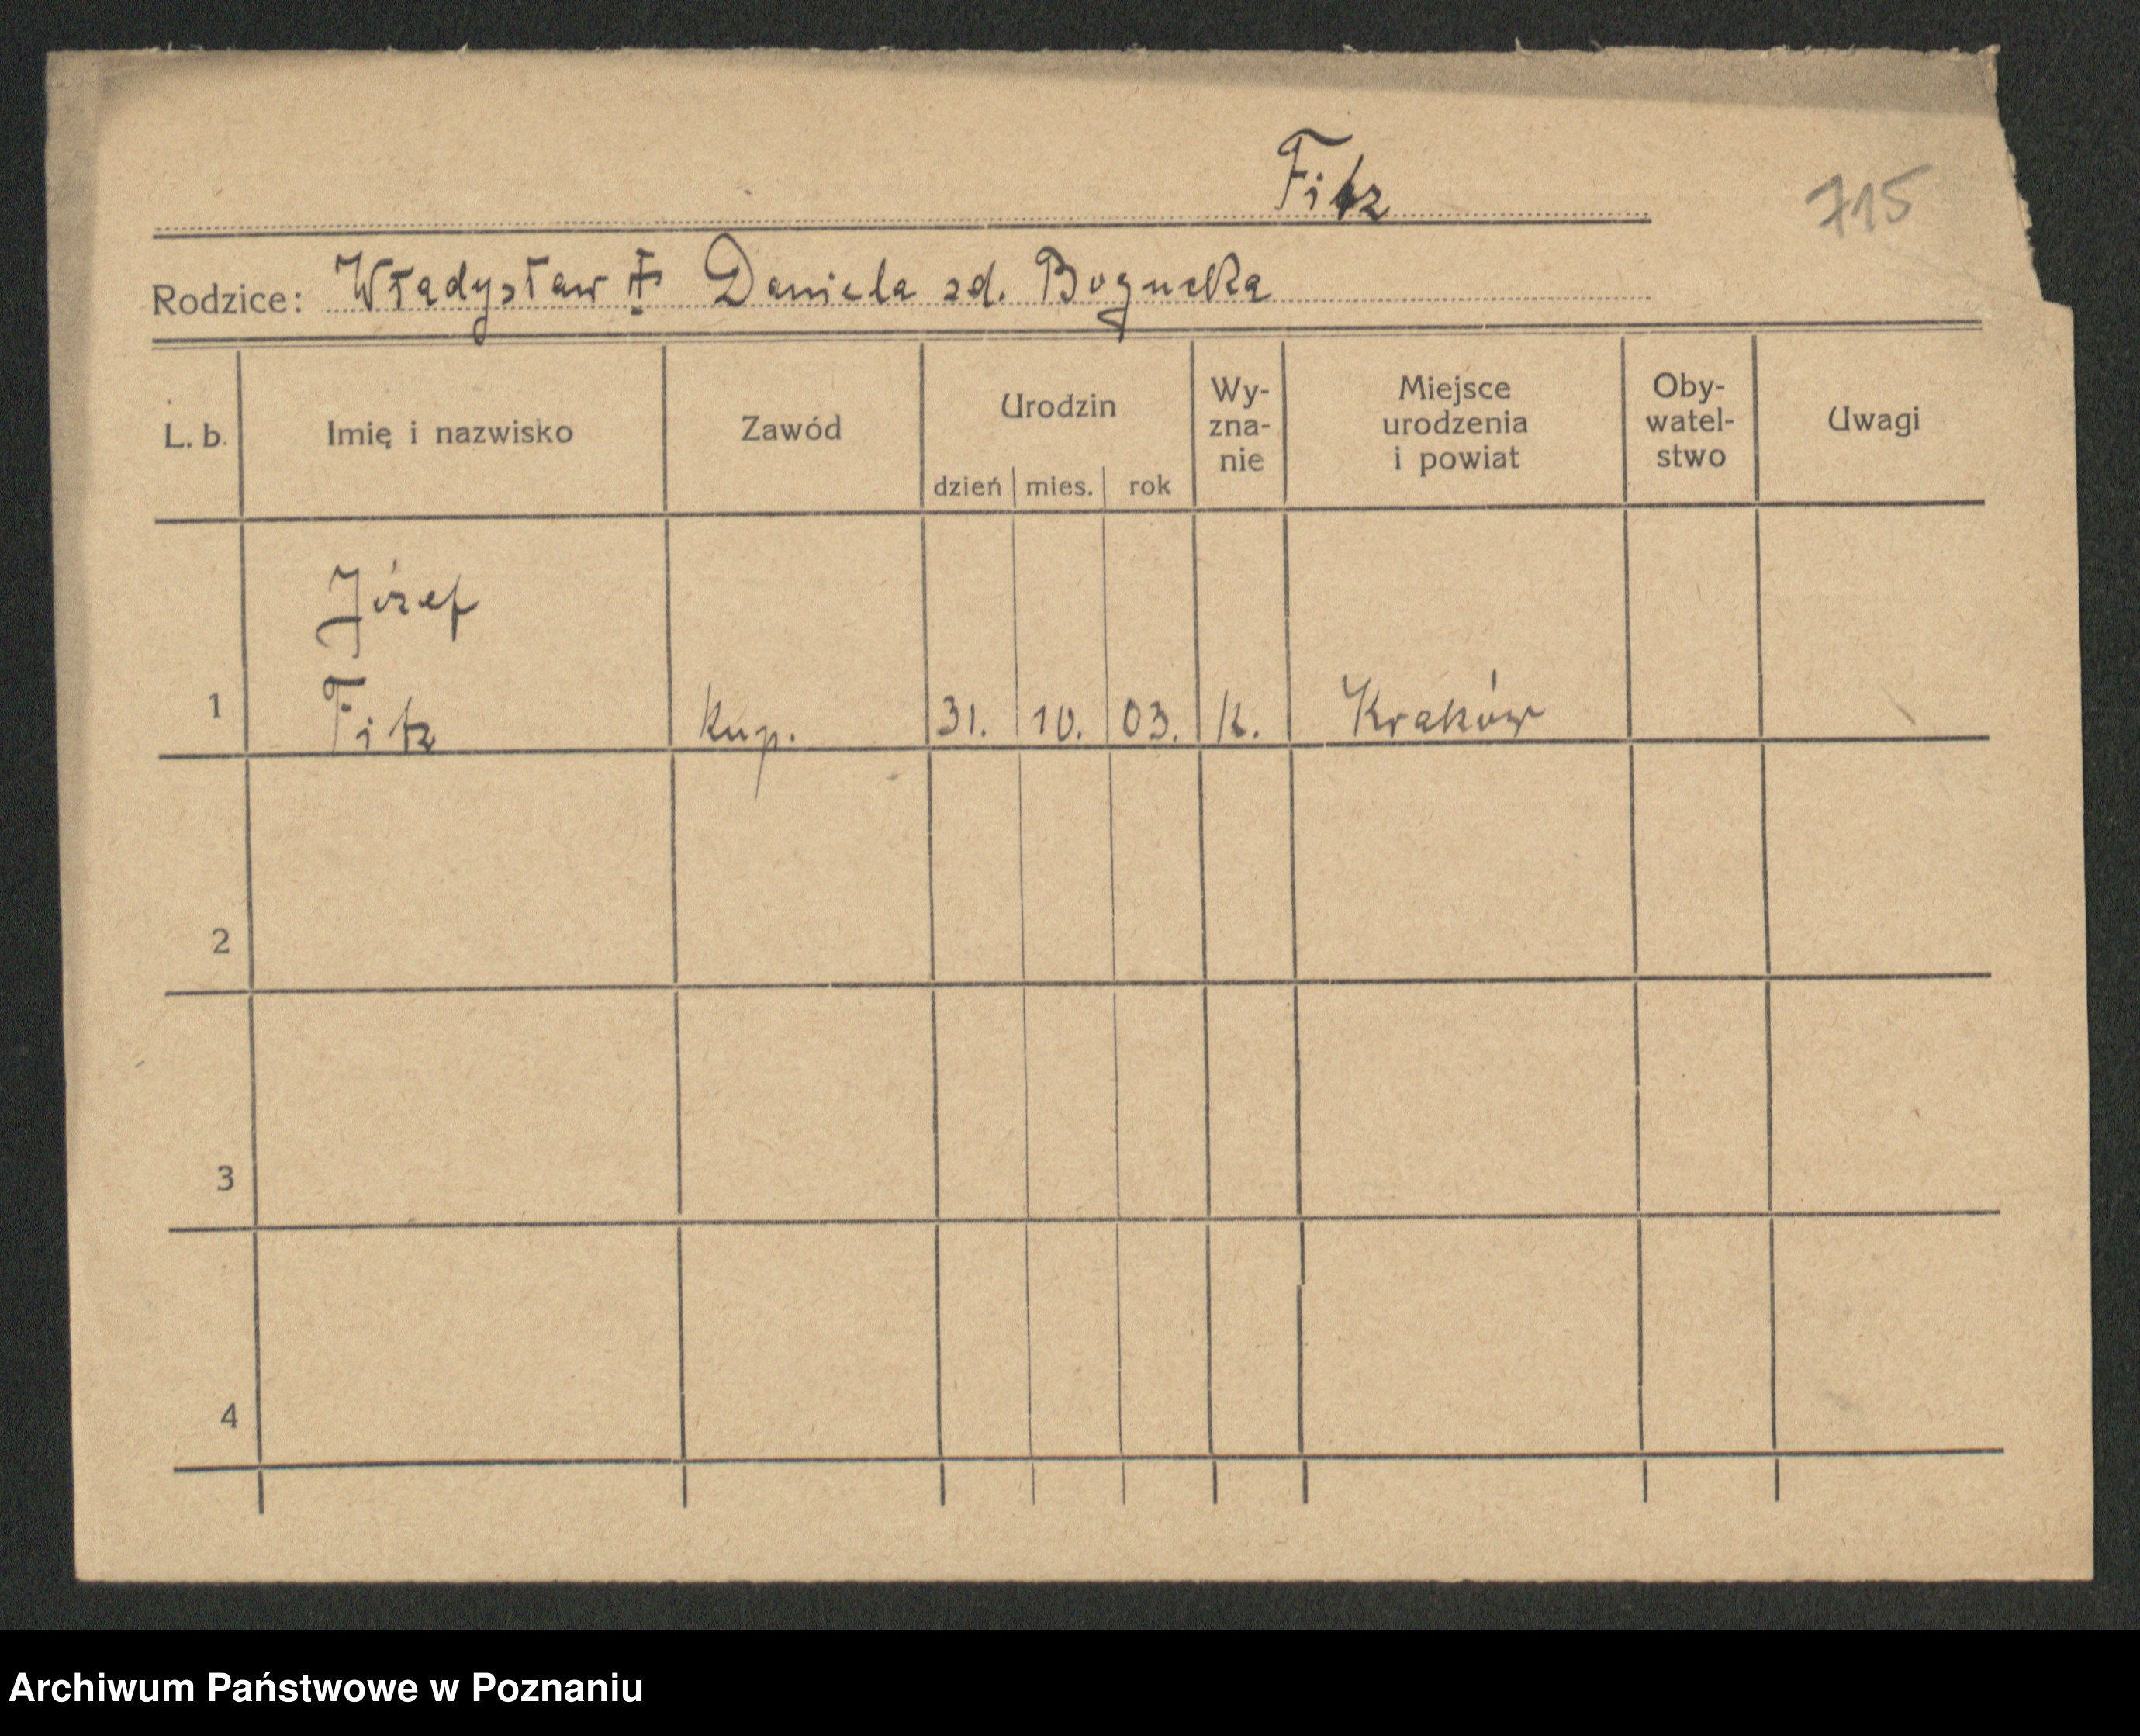 Fitz
715
Rodzice: Władysław ‡ Daniela zd. Bogucka
L. b.
Imię i nazwisko
Zawód
Urodzin
dzień mies. rok
Wy-
zna-
nie
Miejsce
urodzenia
i powiat
Oby-
watel-
stwo
Uwagi
Józef
1 Fitz kup. 31. 10. 03. K. Kraków
2
3
4
Archiwum Państwowe w Poznaniu